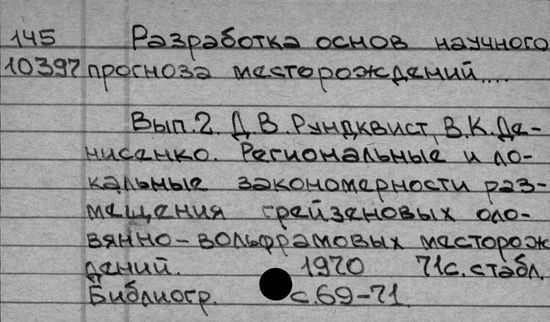 145 Разработка основ научного
10397 прогноза месторождений....
Вып.2. Д.В.Рундквист, В.К.Де-
нисенко. Региональные и ло-
кальные закономерности раз-
мещения грейзеновых оло-
вянно-вольфрамовых месторож
дений. 1970 71с. стабл.
Библиогр. с.69-71.